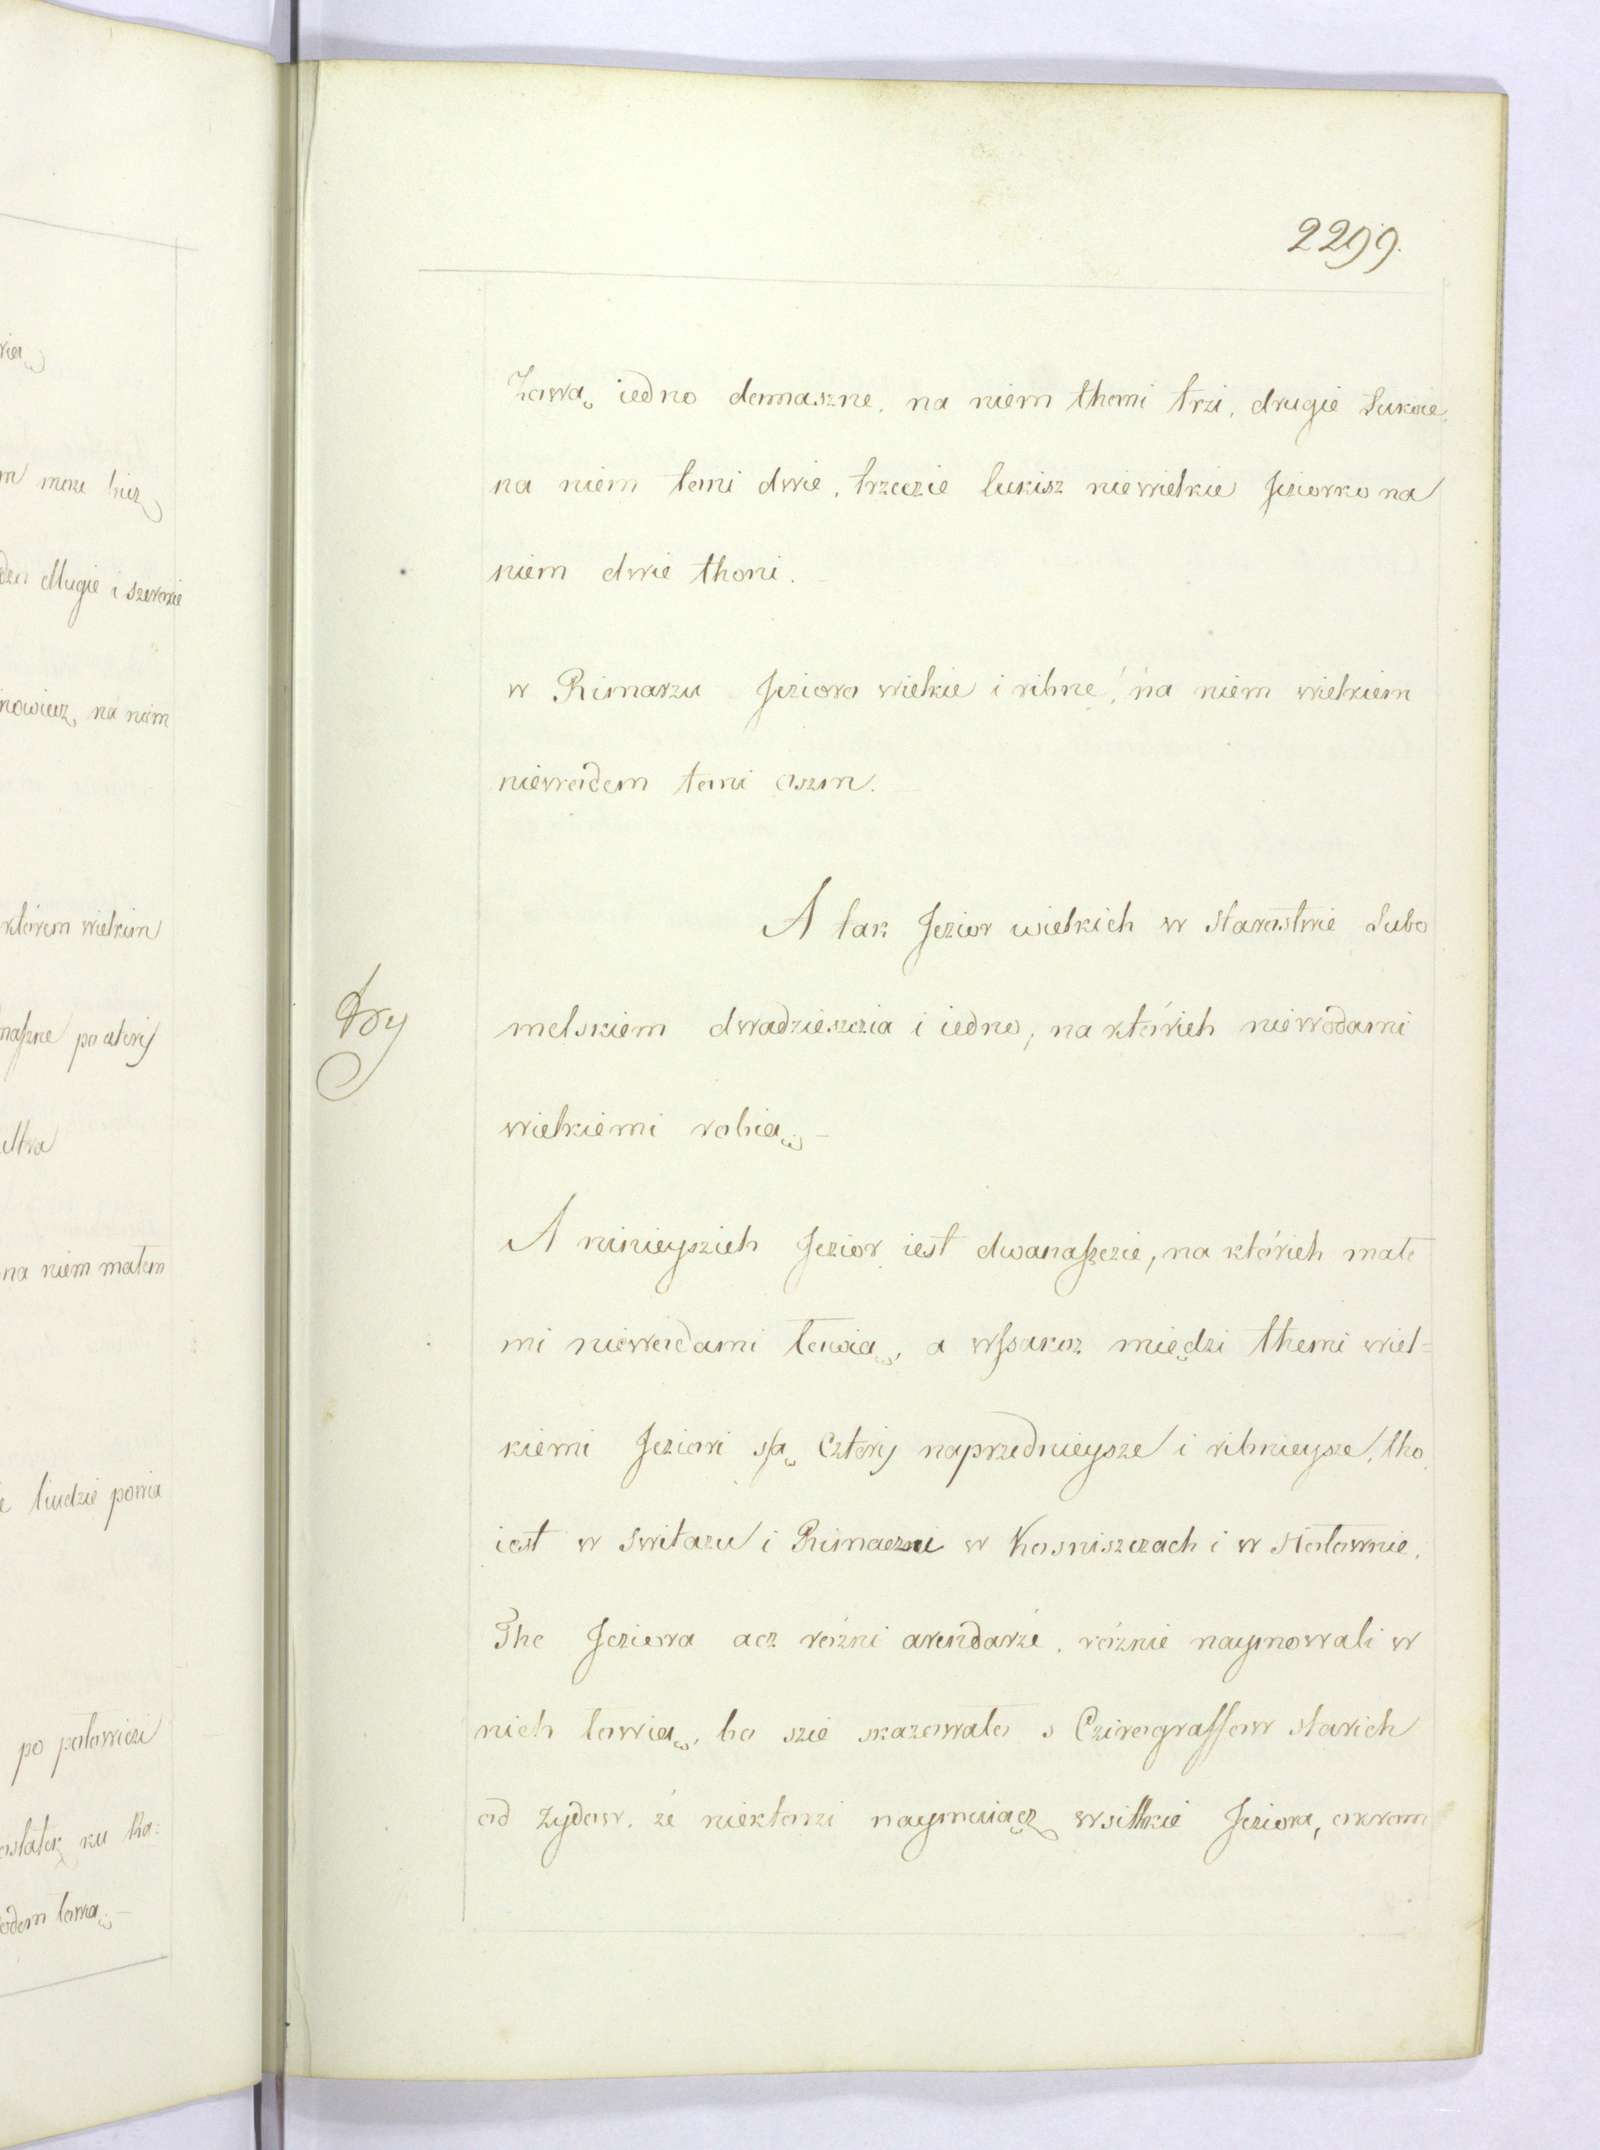 2299.
Zowią iedno domaszne, na niem thoni trzi, drugie Lukie,
na niem toni dwie, trzeczie lukisz niewielkie Jeziorko na
niem dwie thoni.
w Rimarzu Jezioro wielkie i ribne, na niem wielkiem
niewodem toni oszm.
A tak Jezior wielkich w starostwie Lubo
melskiem dwadzieszczia i iedno, na których niewodami
wielkiemi robią
A minieyszich Jezior iest dwanaszczie, na których małe
mi niewodami łowią, a wszakoz między themi wiel=
kiemi Jeziori są cztery naprzednieysze i ribnieysze, tho
iest w Switazu i Rimaczu w Kosniszczach i w Hołownie.
The Jeziora acz rozni arendarze, róznie naymowali w
nich łowią, bo szie skazowało s Czirograffow starich
od Zydow, ze niektorzi naymuiącz wsitkie Jeziora, okrom
wią
m moze bicz
dlugie i szerokie
na niem
którem wielkim
na niem małem
ludzie powia
po połowiczi
ostatek ku Ra:
łowią